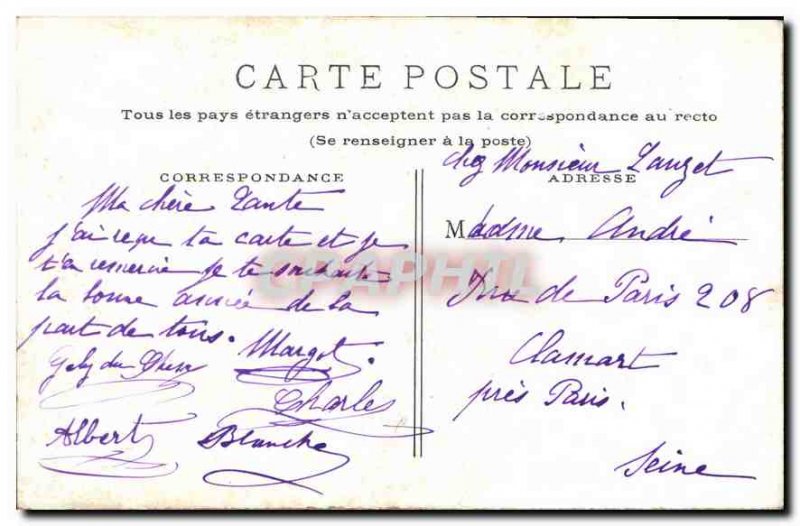 CARTE POSTALE
Tous les pays étrangers n'acceptent pas la correspondance au recto
(Se renseigner à la poste)
CORRESPONDANCE
Ma chère Tante
j'ai reçu ta carte et je
t'a remercie je te souhaite
la bonne année de la
part de tous. Margot.
Charles
Albert Blanche
ADRESSE
chez Monsieur Lauzet
Madme André
Rue de Paris 208
Clamart
près Paris.
Seine
CPAPHIL